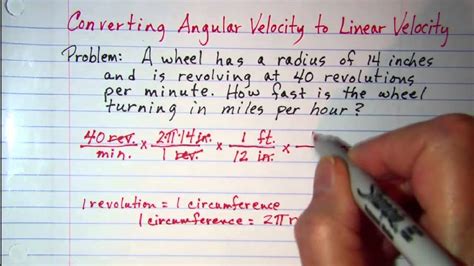 Converting Angular Velocity to Linear Velocity
Problem: A wheel has a radius of 14 inches
and is revolving at 40 revolutions
per minute. How fast is the wheel
turning in miles per hour?
40 rev. / min. × 2π·14 in. / 1 rev. × 1 ft. / 12 in. ×
1 revolution = 1 circumference
1 circumference = 2πr